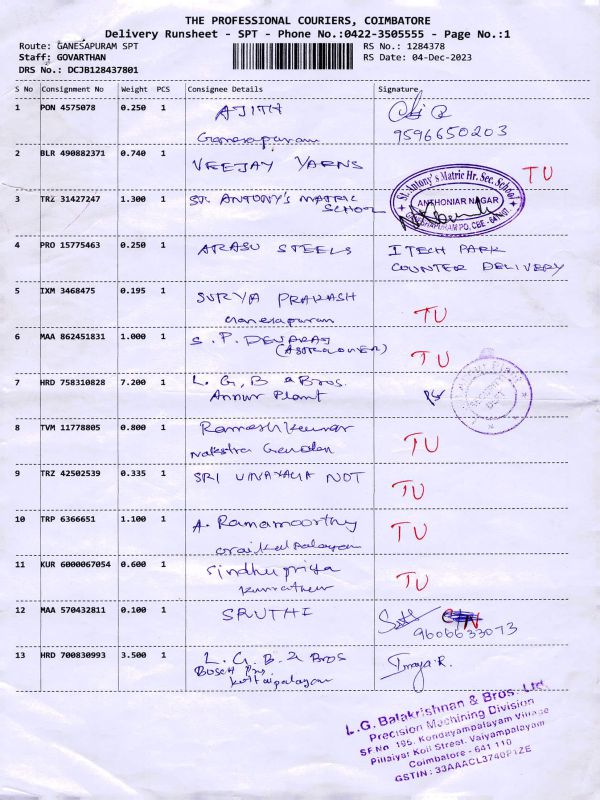 THE PROFESSIONAL COURIERS, COIMBATORE
Delivery Runsheet - SPT - Phone No.:0422-3505555 - Page No.:1
Route: GANESAPURAM SPT
RS No.: 1284378
Staff: GOVARTHAN
RS Date: 04-Dec-2023
DRS No.: DCJB128437801
S No Consignment No Weight PCS Consignee Details Signature
1 PON 4575078 0.250 1 AJITH
Ganesapuram 9596650203
2 BLR 490882371 0.740 1 VEEJAY YARNS TU
3 TRZ 31427247 1.300 1 ST. ANTONY'S MATRIC
SCHOOL
St. Antony's Matric Hr. Sec. School
ANTHONIAR NAGAR
PO, CBE - 641 107
4 PRO 15775463 0.250 1 ARASU STEELS ITECH PARK
COUNTER DELIVERY
5 IXM 3468475 0.195 1 SURYA PRAKASH
Ganesapuram TU
6 MAA 862451831 1.000 1 S. P. DEVARAJ
(ASTROLOGER) TU
7 HRD 758310828 7.200 1 L. G. B & Bros.
Annur Plant
8 TVM 11778805 0.800 1 Rameshkumar
TU
9 TRZ 42502539 0.335 1 SRI VINAYAGA NOT TU
10 TRP 6366651 1.100 1 A. Ramamoorthy TU
11 KUR 6000067054 0.600 1 Sindhupriya
TU
12 MAA 570432811 0.100 1 SRUTHI
9606633073
13 HRD 700830993 3.500 1 L. G. B & Bros
Kottaipalayam
L.G. Balakrishnan & Bros. Ltd.
Precision Machining Division
SF No 195, Kondayampalayam Village
Pillaiyar Koil Street, Vaiyampalayam
Coimbatore - 641 110
GSTIN : 33AAACL3740P1ZE